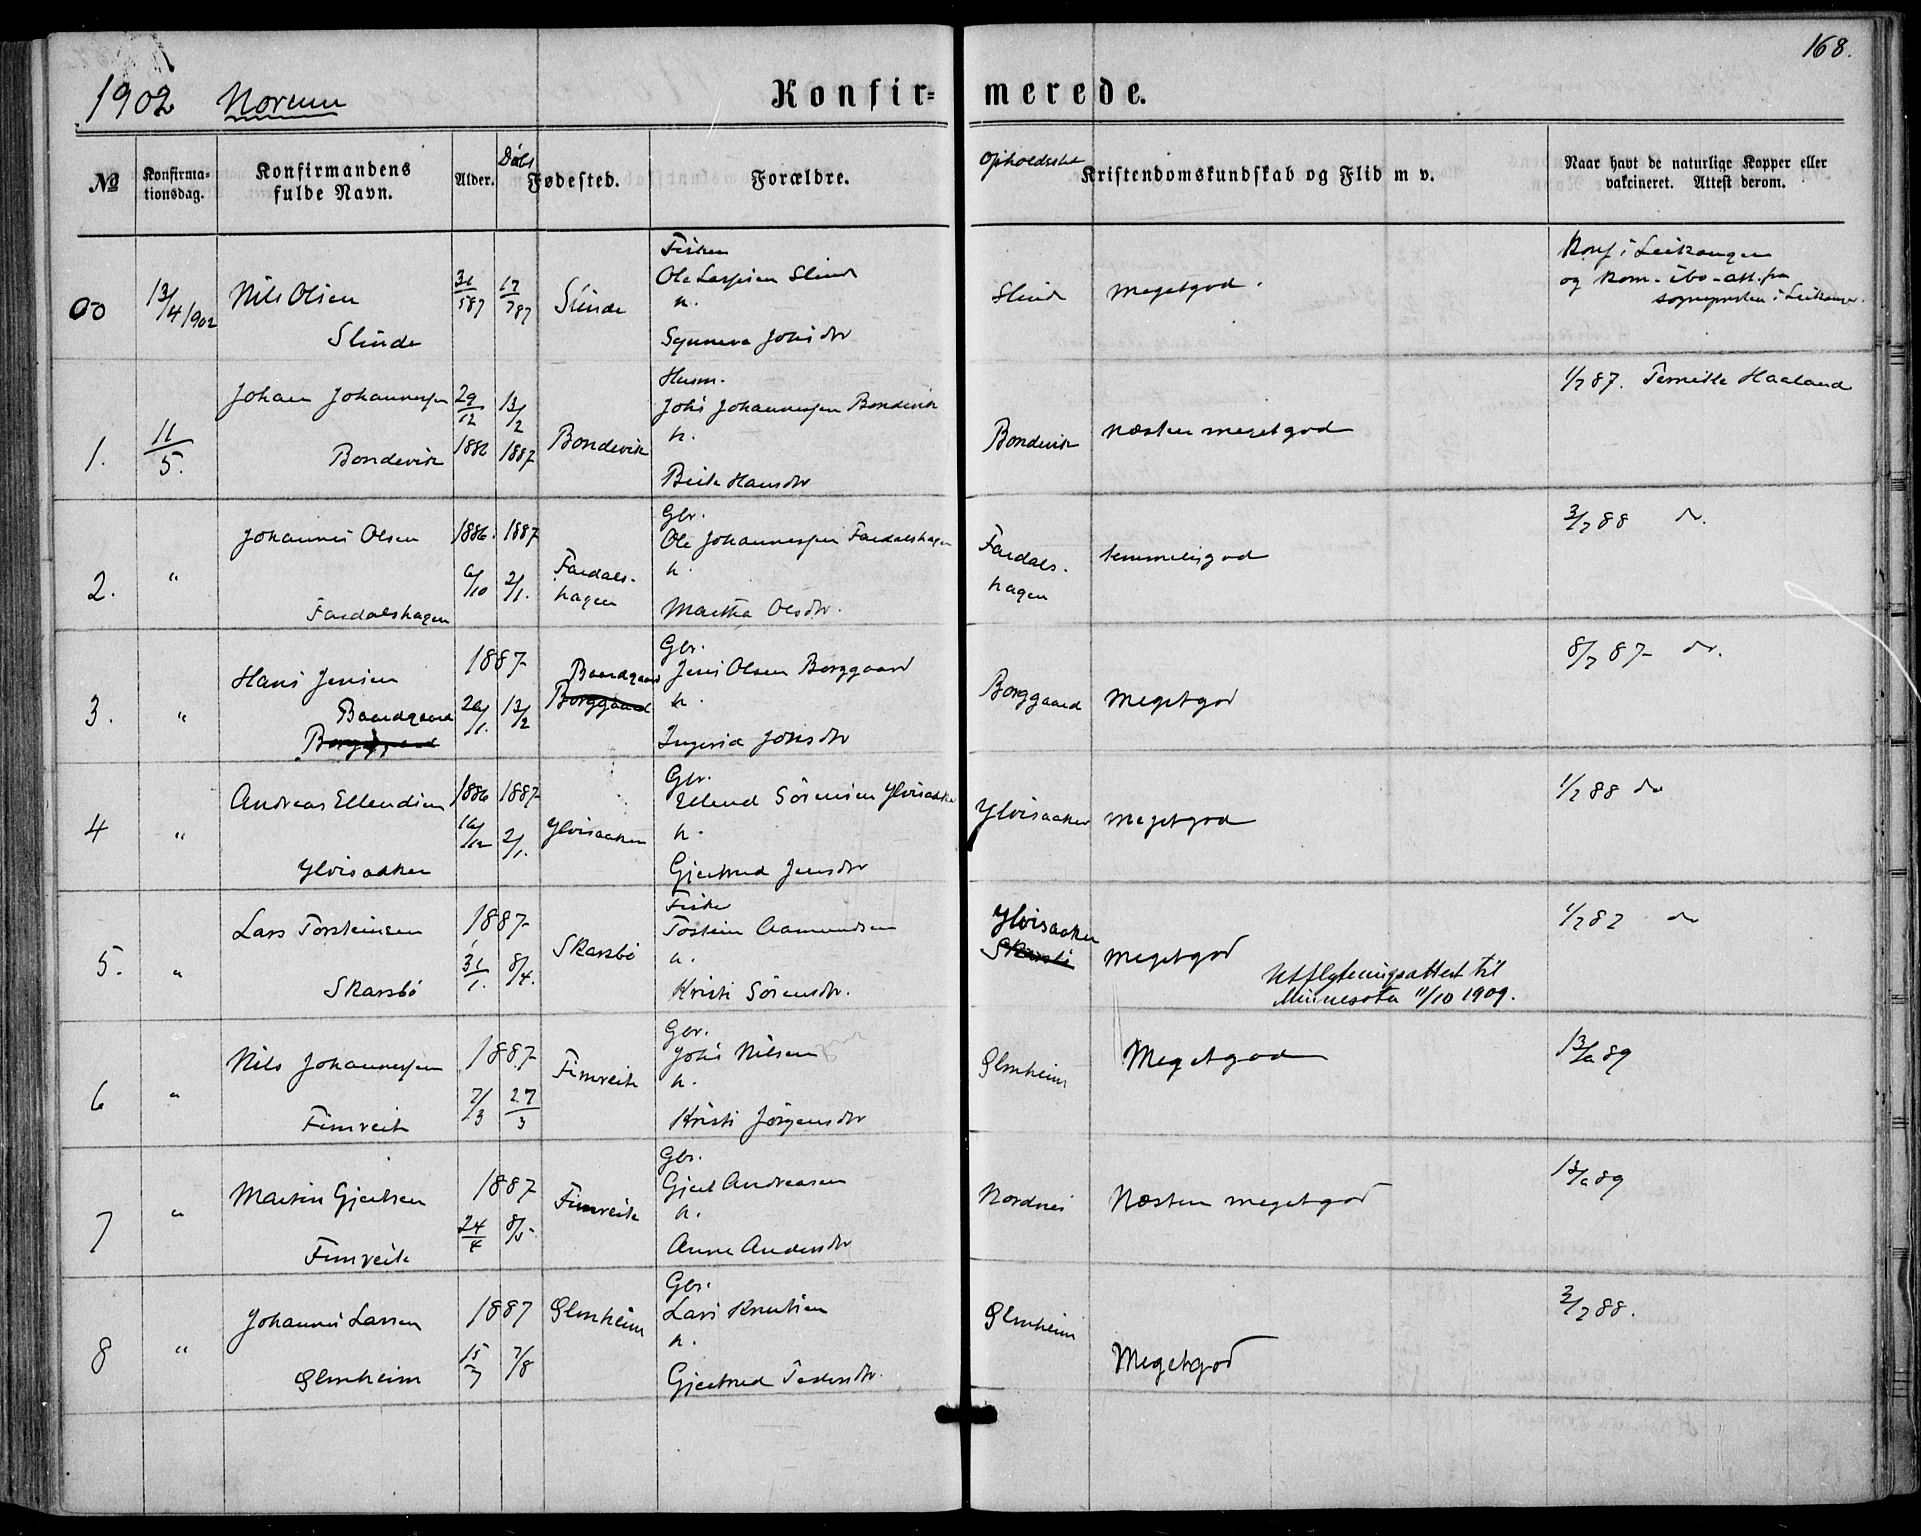 168.
1902 Norum Konfir= merede.
№ Konfirma=tionsdag. Konfirmandens fulde Navn. Alder. Døbt Fødested. Forældre. Opholdssted Kristendomskundskab og Flid m v. Naar havt de naturlige Kopper eller vakcineret. Attest derom.
00 13/4 1902 Nils Olsen Slinde 31/5 87 17/7 87 Slinde
Ole Larssen Slind
h.
Synneva Johs dtr
Slind megetgod.
Konf i Leikanger
og kom-ibo-att. fra
sogneprsten i Leikanger.
1. 11/5. Johan Johannessen Bondevik 29/12 1886 13/2 1887 Bondevik
Husm.
Johs Johannessen Bondevik
h.
Brita Hansdtr
Bondevik næsten megetgod
1/7 87. Haaland
2. " Johannes Olsen Fardalshagen 1886. 6/10 1887 2/1. Fardals-hagen
Gbr.
Ole Johannessen Fardalshagen
h.
Martha Olsdtr.
Fardals-hagen temmeliggod
3/7 88 do.
3. " Hans Jensen Baardgaard Borggaard 1887 20/1. 13/2 Baardgaard Borggaard
Gbr.
Jens Olsen Borggaard
h.
Ingerid Johsdtr
Borggaard Megetgod
8/7 87 do.
4 " Andreas Ellendsen Ylvisaaker 1886 16/12 1887 2/1. Ylvisaaker
Gbr.
Ellend Sörensen Ylvisaaker
h.
Gjertrud Jensdtr
Ylvisaaker megetgod
1/7 88 do
5. " Lars Torsteinsen Skarsbö 1887 31/1. 8/4. Skarsbö
Tostein Aamundsen
h.
Kristi Sörensdtr.
Ylvisaaker Skarsbö megetgod
Utflytningsattest til
Minnesota 11/10 1909.
1/7 87 do
6 " Nils Johannessen Fimreite 1887 7/3 27/3 Fimreite
Gbr.
Johs Nilsen
h.
Kristi Jörgensdtr
Slinheim Megetgod
13/9 89
7 " Martin Gjertsen Fimreite 1887 24/4 8/5 Fimreite
Gbr.
Gjert Andreasen
h.
Anna Andersdtr
Nordnes Næsten megetgod
13/9 89
8 " Johannes Larsen Slinheim 1887 15/7 7/8 Slinheim
Gbr.
Lars Knutsen
h.
Gjertrud Pedersdtr.
Slinheim Megetgod
3/7 88.